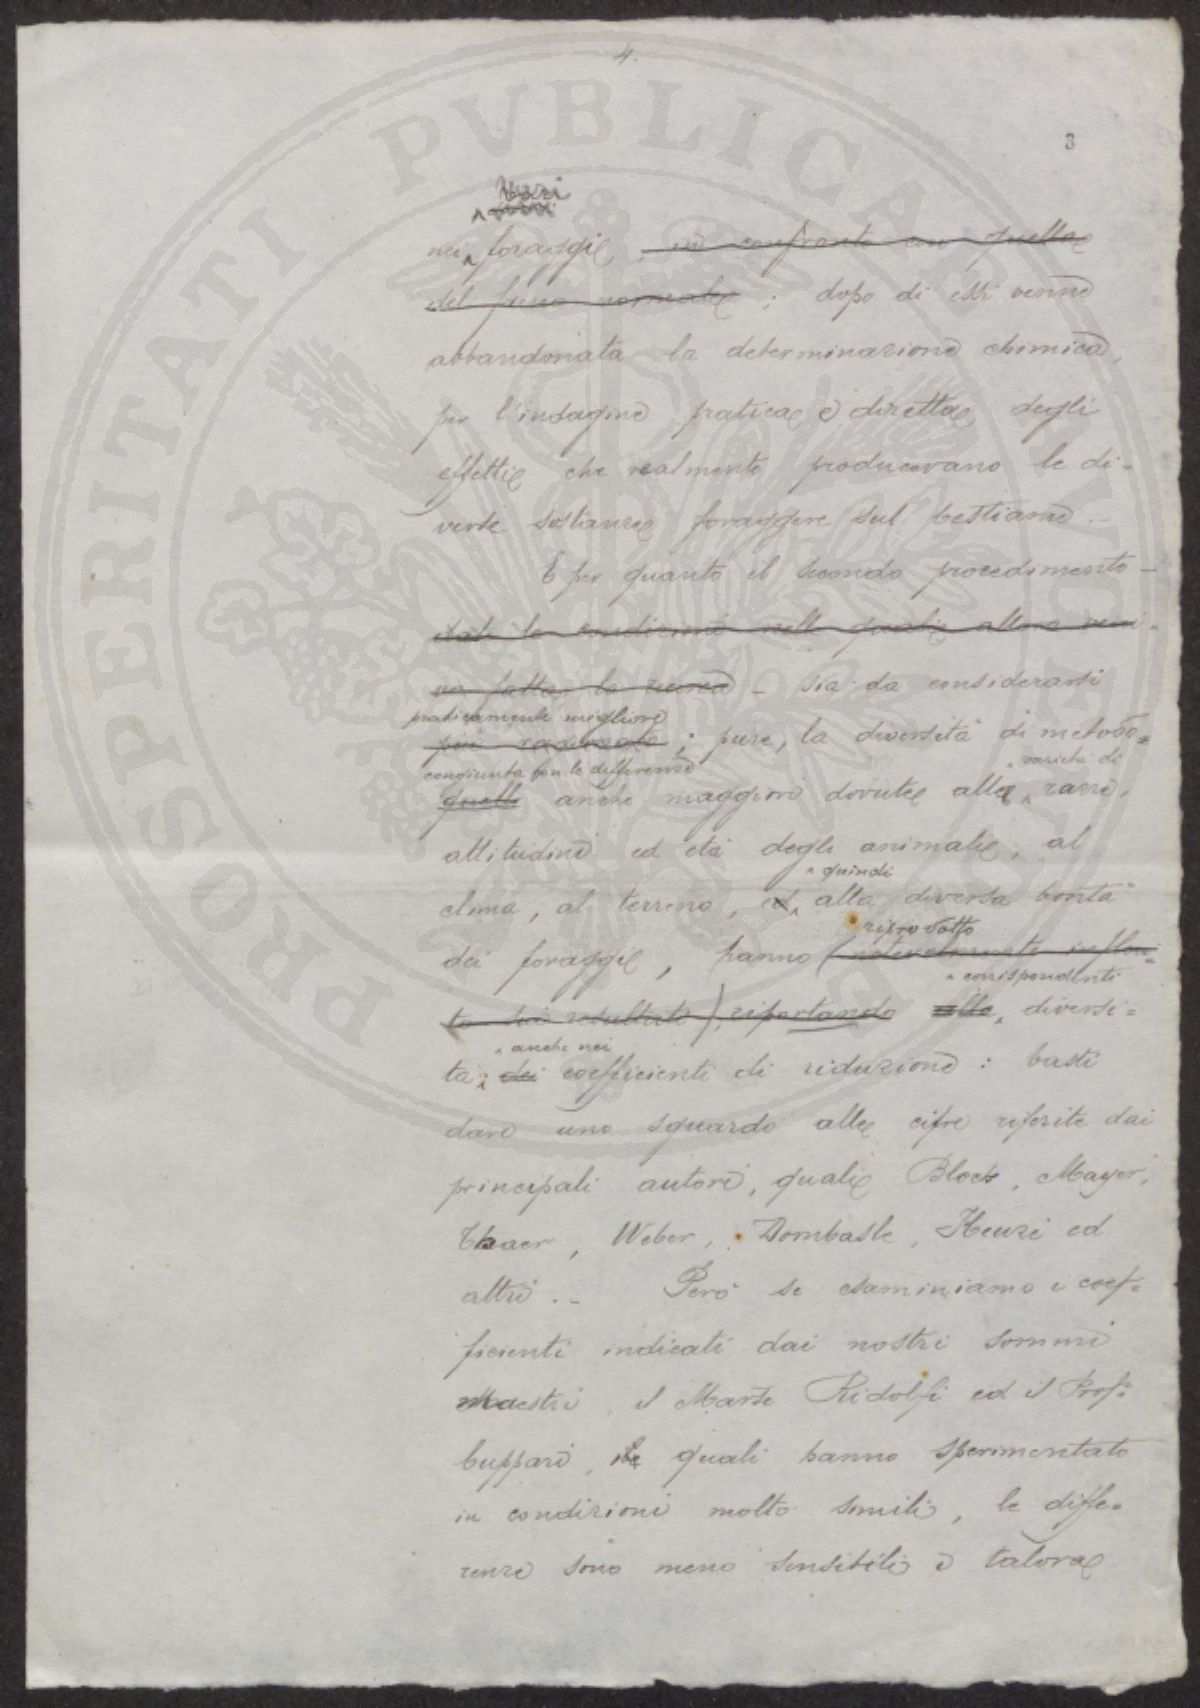 4.
3
vari
nei foraggi, in confronto con quella
del fieno normale ; dopo di essi venne
abbandonata la determinazione chimica,
per l'indagine pratica e diretta degli
effetti che realmente producevano le di=
verse sostanze foraggere sul bestiame.-
E per quanto il secondo procedimento -
date le condizioni nelle quali allora veni-
va fatta la ricerca - sia da considerarsi
praticamente migliore
più razionale ; pure, la diversità di metodo=
congiunta con le differenze varietà di
quelle anche maggiori dovute alle razze,
attitudini ed età degli animali, al
quindi
clima, al terreno, ed alla diversa bontà
riprodotto
dei foraggi, hanno (notevolmente influi=
corrispondenti
to sui resultati), riportando alle diversi=
anche nei
tà dei coefficienti di riduzione : basti
dare uno sguardo alle cifre riferite dai
principali autori, quali Block, Mayer,
Thaer, Weber, Dombasle, Heuzé ed
altri.- Però se esaminiamo i coef=
ficienti indicati dai nostri sommi
Maestri, il March. Ridolfi ed il Prof.
Cuppari, i quali hanno sperimentato
in condizioni molto simili, le diffe=
renze sono meno sensibili e talora
PROSPERITATI PVBLICAE